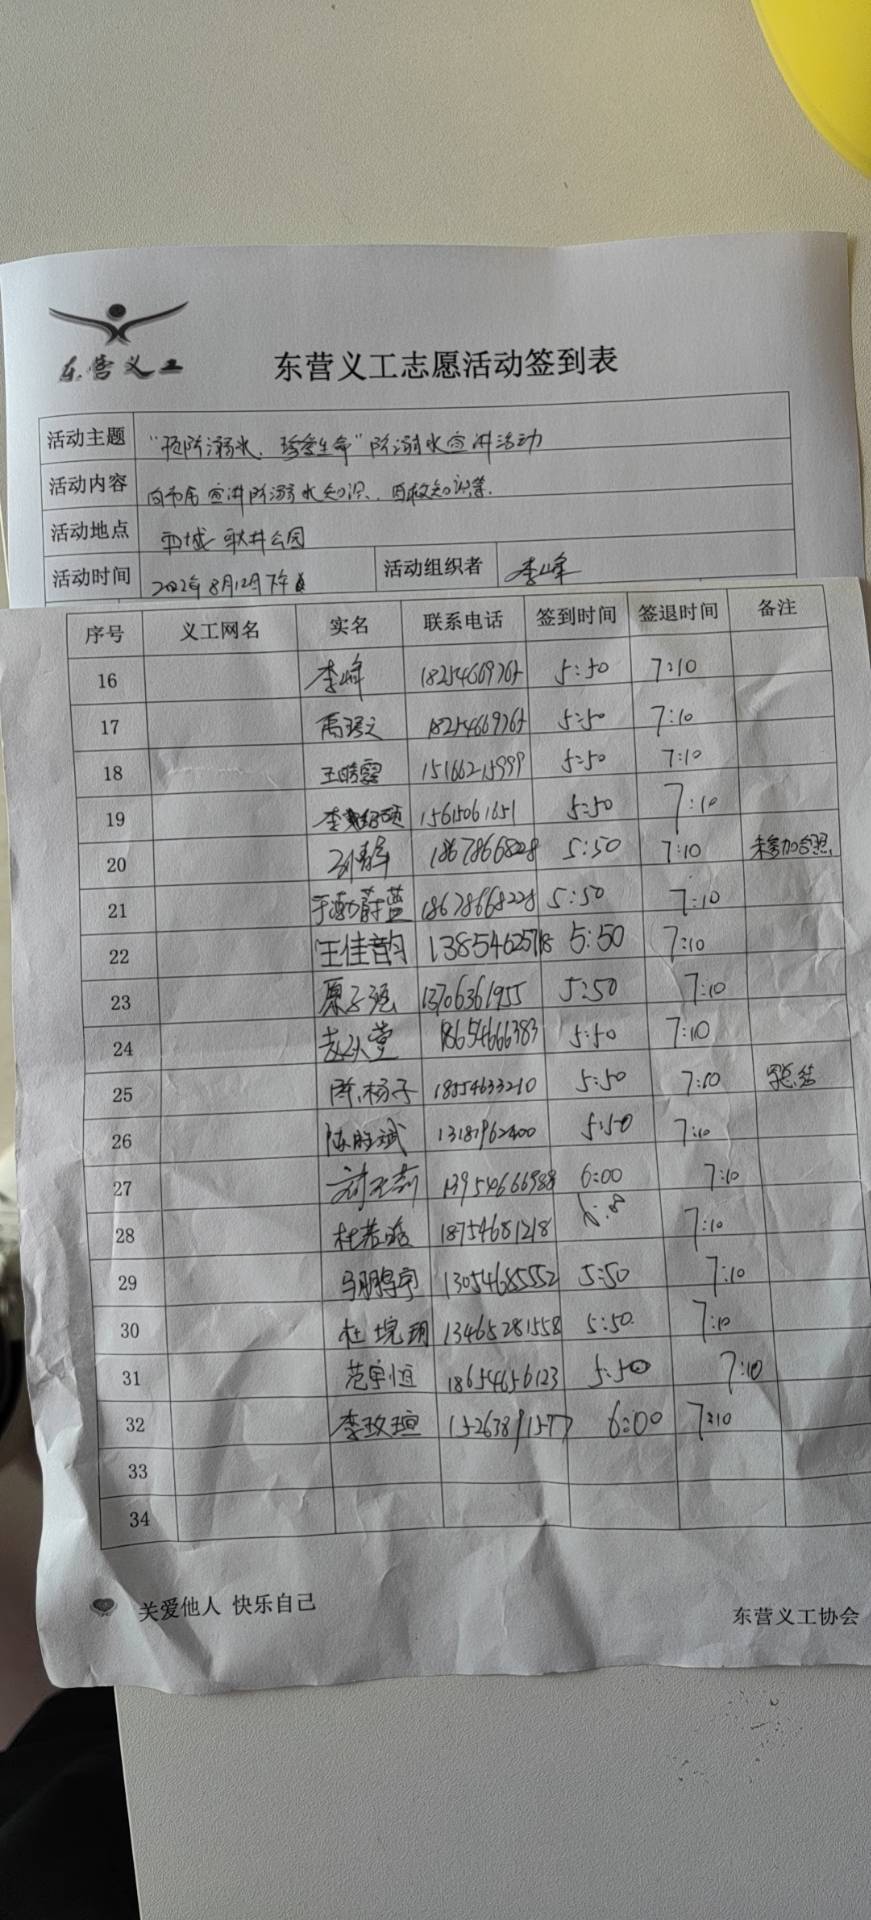 东营义工
东营义工志愿活动签到表
活动主题 "预防溺水、珍爱生命"防溺水宣讲活动
活动内容 向市民宣讲防溺水知识、自救知识等.
活动地点 西城 耿井公园
活动时间 2022年8月12日下午 活动组织者 李峰
序号 义工网名 实名 联系电话 签到时间 签退时间 备注
16 李峰 5:50 7:10
17 5:50 7:10
18 王晴霏 15166215999 5:50 7:10
19 15615061651 5:50 7:10
20 18678668228 5:50 7:10 未参加合照
21 蔚蓝 18678668228 5:50 7:10
22 王佳韵 5:50 7:10
23 原子强 13706361955 5:50 7:10
24 18654666383 5:50 7:10
25 杨子 18554633210 5:50 7:10 写总结
26 陈胜斌 13181962400 5:50 7:10
27 13954666988 6:00 7:10
28 杜若 18754681218 7:10
29 马鹏宇 13054685552 5:50 7:10
30 杜境玥 13465281558 5:50. 7:10
31 范宇恒 18654656123 5:50 7:10
32 李玫瑄 15263891577 6:00 7:10
33
34
关爱他人 快乐自己
东营义工协会